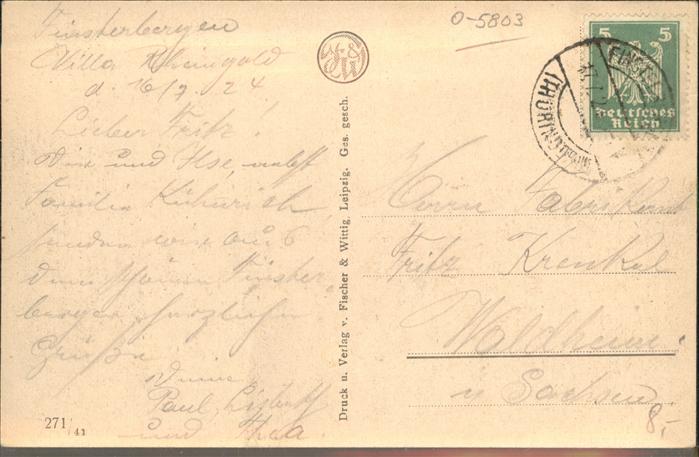 Finsterbergen
Villa Rheingold
d. 16/7 24
Lieber Fritz!
Dir und Ilse, nebst
Familie
senden wir aus
dem schönen Finster-
bergen herzliche
Grüße
Deine
Paul,
und Thea.
271/41
Druck u. Verlag v. Fischer & Wittig, Leipzig. Ges. gesch.
O-5803
5 5
Deutsches
Reich
(THÜRING
Herrn
Fritz Krenkel
Waldheim
i/ Sachsen.
8,-